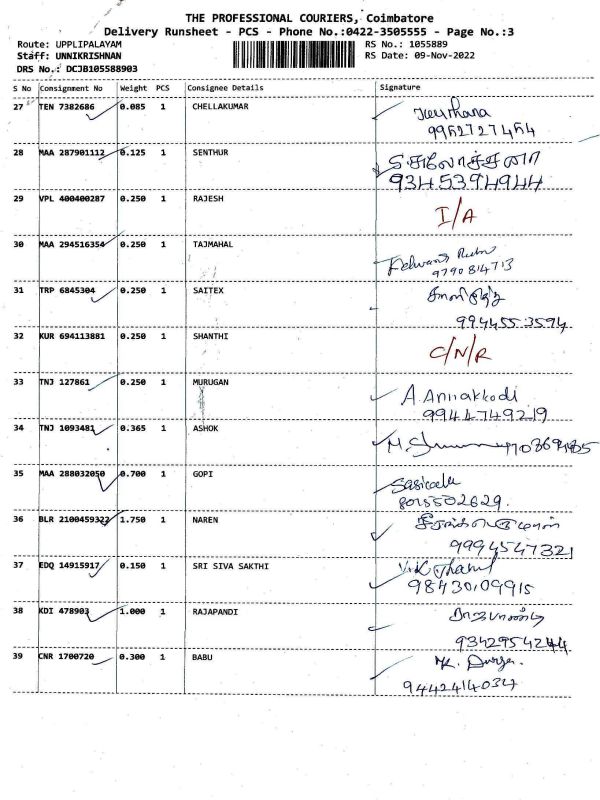 THE PROFESSIONAL COURIERS, Coimbatore
Delivery Runsheet - PCS - Phone No.:0422-3505555 - Page No.:3
Route: UPPLIPALAYAM RS No.: 1055889
Staff: UNNIKRISHNAN RS Date: 09-Nov-2022
DRS No.: DCJB105588903
S No Consignment No Weight PCS Consignee Details Signature
27 TEN 7382686 0.085 1 CHELLAKUMAR
28 MAA 287901112 0.125 1 SENTHUR
9345394944
29 VPL 400400287 0.250 1 RAJESH I/A
30 MAA 294516354 0.250 1 TAJMAHAL
9790814713
31 TRP 6845304 0.250 1 SAITEX
9944553594
32 KUR 694113881 0.250 1 SHANTHI C/N/R
33 TNJ 127861 0.250 1 MURUGAN A. Annakkodi
9944749219
34 TNJ 1093481 0.365 1 ASHOK
35 MAA 288032050 0.700 1 GOPI Sasikala
8015502629
36 BLR 2100459322 1.750 1 NAREN
9994547321
37 EDQ 14915917 0.150 1 SRI SIVA SAKTHI
9843009915
38 KDI 478903 1.000 1 RAJAPANDI ராஜபாண்டி
9342954244
39 CNR 1700720 0.300 1 BABU
9442414034